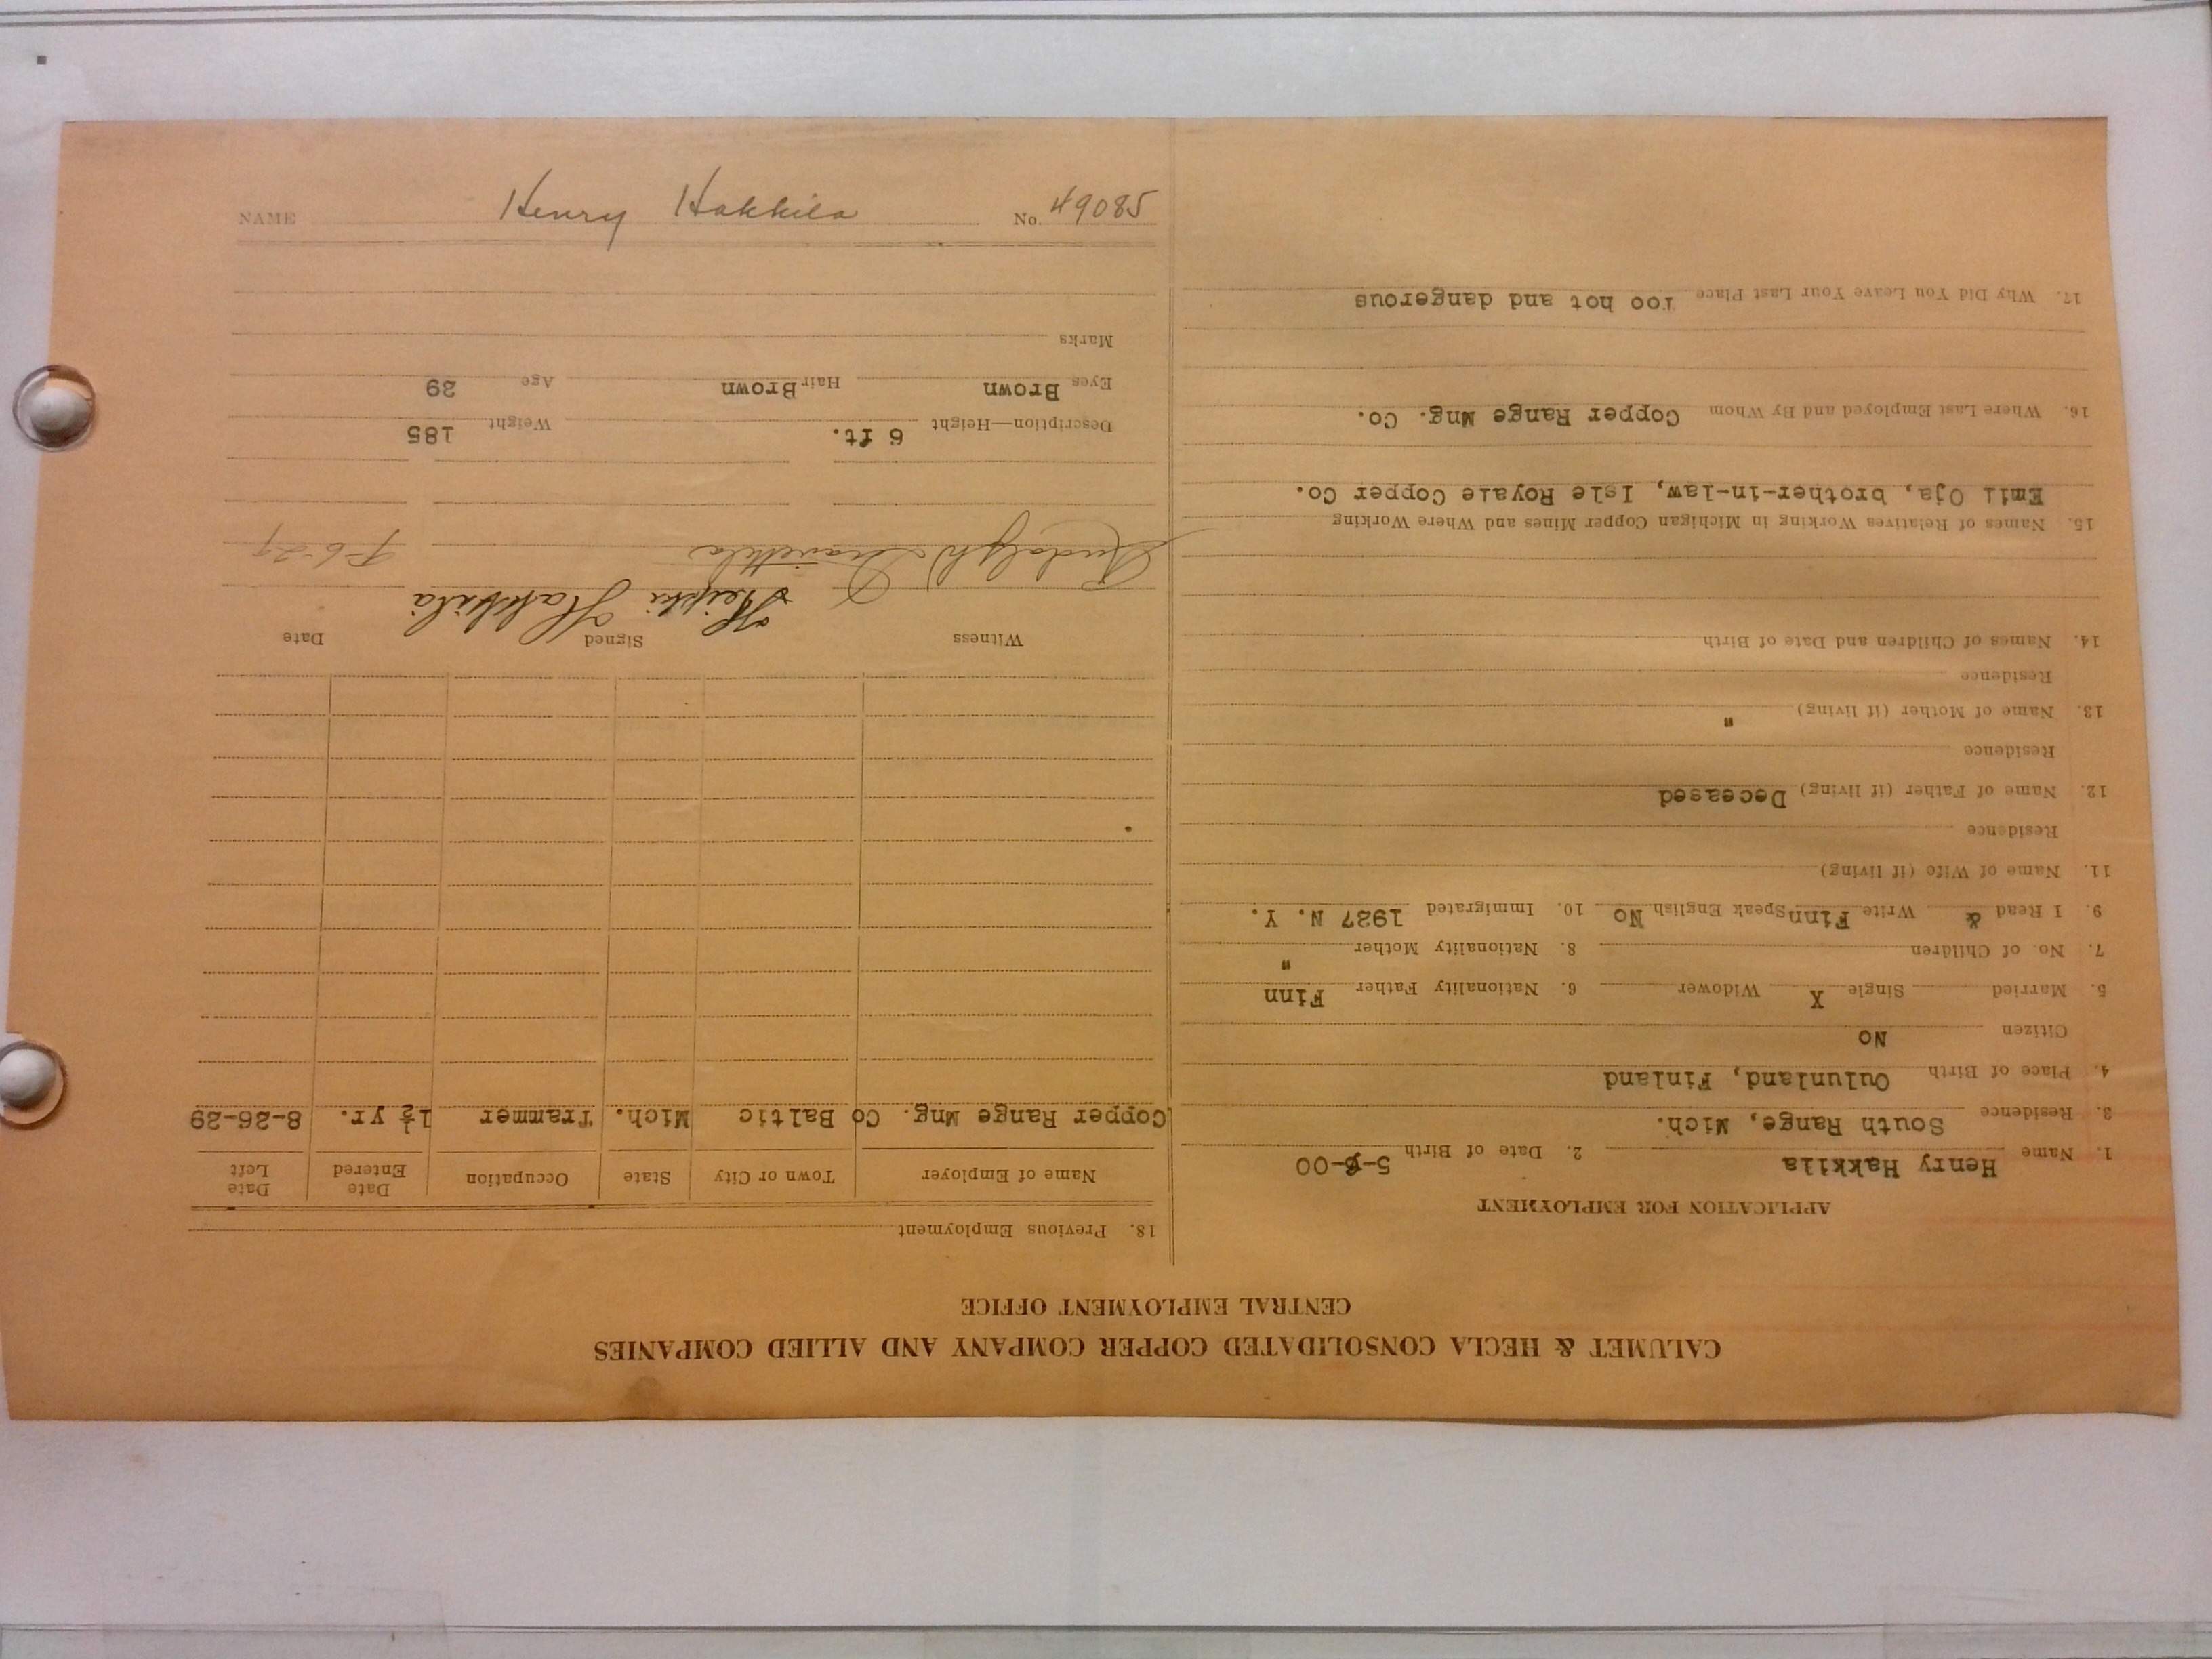 CALUMET & HECLA CONSOLIDATED COPPER COMPANY AND ALLIED COMPANIES
CENTRAL EMPLOYMENT OFFICE
APPLICATION FOR EMPLOYMENT
1. Name Henry Hakkila 2. Date of Birth 5-6-00
3. Residence South Range, Mich.
4. Place of Birth Oulunland, Finland
Citizen No
5. Married Single X Widower 6. Nationality Father Finn
7. No. of Children 8. Nationality Mother "
9. I Read & Write Finn Speak English No 10. Immigrated 1927 N. Y.
11. Name of Wife (if living)
Residence
12. Name of Father (if living) Deceased
Residence
13. Name of Mother (if living) "
Residence
14. Names of Children and Date of Birth
15. Names of Relatives Working in Michigan Copper Mines and Where Working
Emil Oja, brother-in-law, Isle Royale Copper Co.
16. Where Last Employed and By Whom Copper Range Mng. Co.
17. Why Did You Leave Your Last Place Too hot and dangerous
18. Previous Employment
Name of Employer Town or City State Occupation Date Entered Date Left
Copper Range Mng. Co Baltic Mich. Trammer 1½ yr. 8-26-29
Witness Signed Date
Heikki Hakkila
Rudolph
Description—Height 6 ft. Weight 185
Eyes Brown Hair Brown Age 29
Marks
NAME Henry Hakkila No. 49085